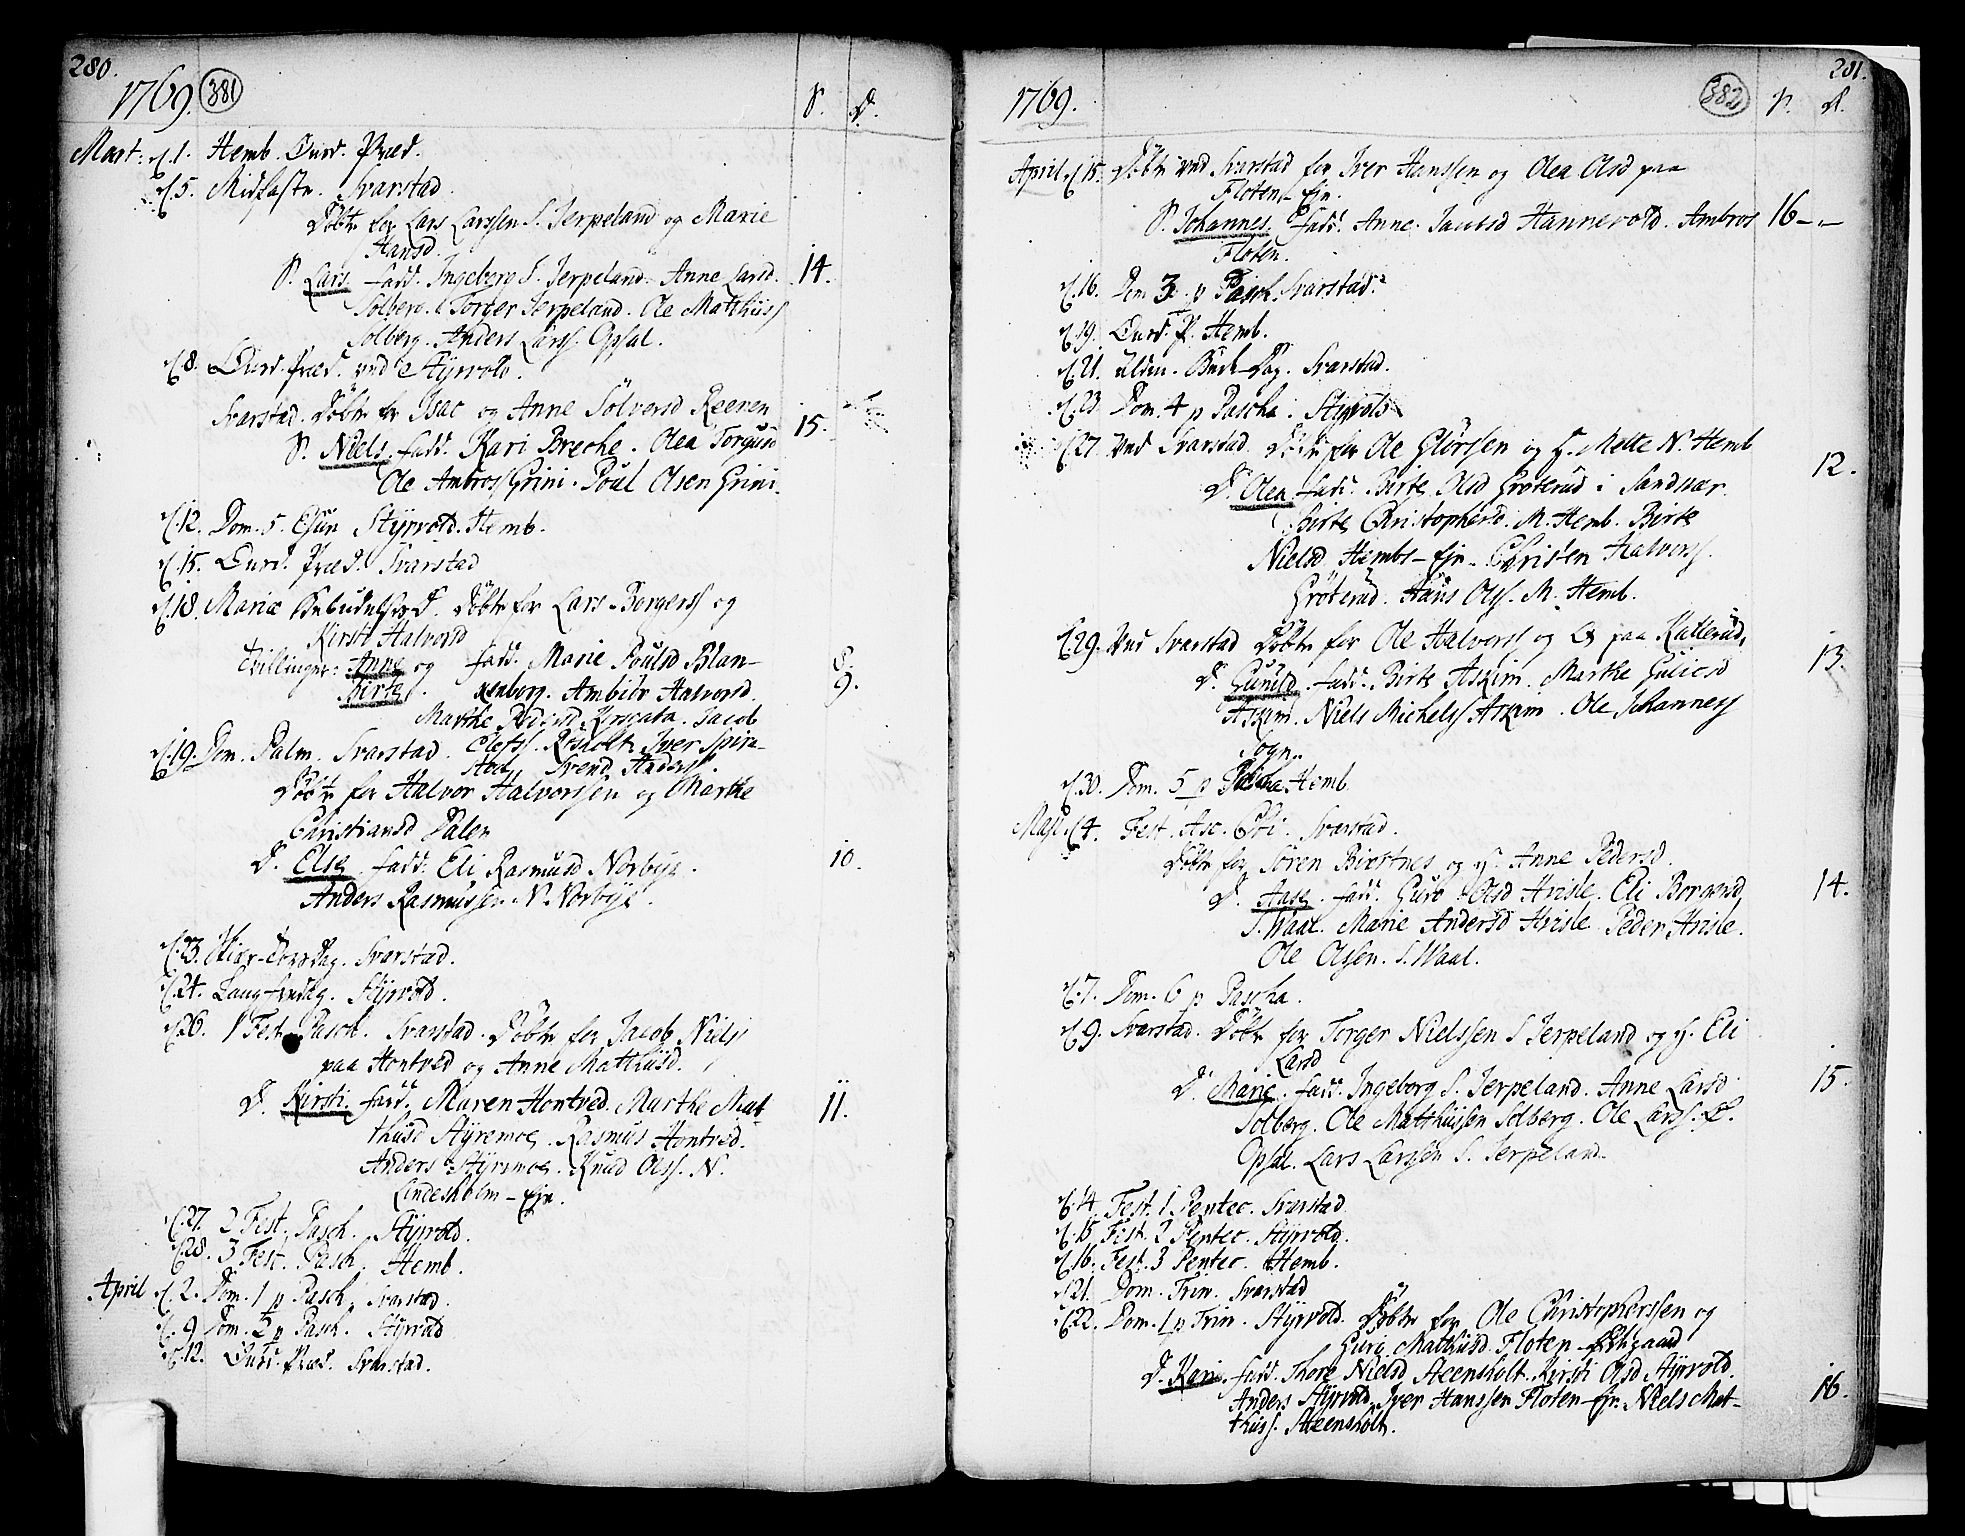 280.
1769. 381 S. D.
Mart: d. 1. Hemb. Ourd. Præd.
d. 5. Midfaste. Svarstad.
Döbt for Lars Larssen S. Jerpeland og Marie
Hansd.
S. Lars. fadd. Ingeberg S. Jerpeland. Anne Larsd. 14.
Solberg. Torger Jerpeland. Ole Matthiss
Solberg. Anders Larss. Opsal.
d. 8. Ourd. Præd. ved Styrvold.
Svarstad. Döbt for Isac og Anne Sölversd Reeren
S. Niels. fadd. Kari Breche. Olea Torgusd 15.
Ole Ambross Grini. Poul Olsen Grini.
d. 12. Dom. 5. Esur Styrvold. Hemb.
d. 15. Ourd. Præd. Svarstad
d. 18. Mariæ Bebudelses D. Döbt for Lars Borgerss og
Kirsti Halvorsd
Tvillinger: Anne og fadd. Marie Poulsd Blan- 8.
Birte. kenborg. Ambiör Halvorsd. 9.
Marthe Jacob
d. 19. Dom. Palm. Svarstad. Olefss. Rösholt Iver Spire-
Svend Anderss.
Döbt for Halvor Halvorssen og Marthe
Christiansd Dalen
D. Else. fadd. Eli Rasmusd Norbye. 10.
Anders Rasmussen N. Norbye.
d. 23. Skier-Torsdag. Svarstad.
d. 24. Langfredag. Styrvold.
d. 26. 1 Fest Pasch. Svarstad. Döbt for Jacob Nielss
paa Hontved og Anne Matthisd.
D. Kirsti. fadd. Maren Hontved. Marthe Mat- 11.
thisd Styremoe. Rasmus Hontved.
Anders Styremoe. Knud Olss. N.
Lindesholm-Eje.
d. 27. 2 Fest. Pasch. Styrvold.
d. 28. 3 Fest. Pasch. Hemb.
April d. 2. Dom. 1 p Pasch. Svarstad.
d. 9 Dom. 2 p Pasch. Styrvold
d. 12. Ourd. Præd. Svarstad.
281.
1769. 382 S. D.
April d. 15. Döbt ved Svarstad for Iver Hanssen og Olea Olsd paa
Floten-Eje.
S. Johannes. fadd. Anne Jacobsd Hannevold. Ambros 16-
Floten.
d. 16. Dom 3. p Pasch. Svarstad.
d. 19. Ourd. P. Hemb.
d. 21. Alden. Bede-Dag. Svarstad.
d. 23. Dom. 4 p Pascha. Styrvold
d. 27. ved Svarstad. Döbt for Ole Glörssen og H. Mette N. Hemb
D. Olea. fadd. Birte Olsd Gröterud i Sandsvær. 12.
Birte Christophersd. M. Hemb. Birte
Nielsd Hembs-Eje. Christen Halvorss.
Gröterud. Hans Olss. M. Hemb.
d. 29. Ved Svarstad Döbt for Ole Halvorss og paa Katterud.
D. Gunild. fadd. Birte Askim. Marthe Guliesd 13.
Askim. Niels Michelss Askim. Ole Johanness
Sogn.
d. 30. Dom. 5 p Pascha Hemb
Maji. d. 4. Fest. Asc. Chri. Svarstad.
Döbt for Sören Birstnes og H. Anne Pedersd.
D. Aase. fadd. Guro Olsd Hvisle. Eli Borgersd 14.
S. Waal. Marie Andersd Hvisle. Peder Hvisle.
Ole Olssen. S. Waal.
d. 7. Dom. 6 p Pascha.
d. 9. Svarstad. Döbt for Torger Nielssen S Jerpeland og H. Eli
Larsd
D. Marie. fadd. Ingeborg S. Jerpeland. Anne Larsd 15.
Solberg. Ole Matthissen Solberg. Ole Larss.
Opsal. Lars Larssen S. Jerpeland.
d. 14. Fest. 1 Pentec. Svarstad
d. 15. Fest. 2 Pentec. Styrvold.
d. 16. Fest. 3 Pentec. Hemb.
d. 21. Dom. Trin. Svarstad
d. 22. Dom. 1 p Trin. Styrvold. Döbt for Ole Christopherssen og
Guri Mathisd. Floten
D. Kari. fadd. Thore Nielsd Steensholt. Kirsti Olsd Styrvold. 16.
Anders Styrvold. Iver Hanssen Floten-Eje. Niels Mat-
thiss. Steensholt.